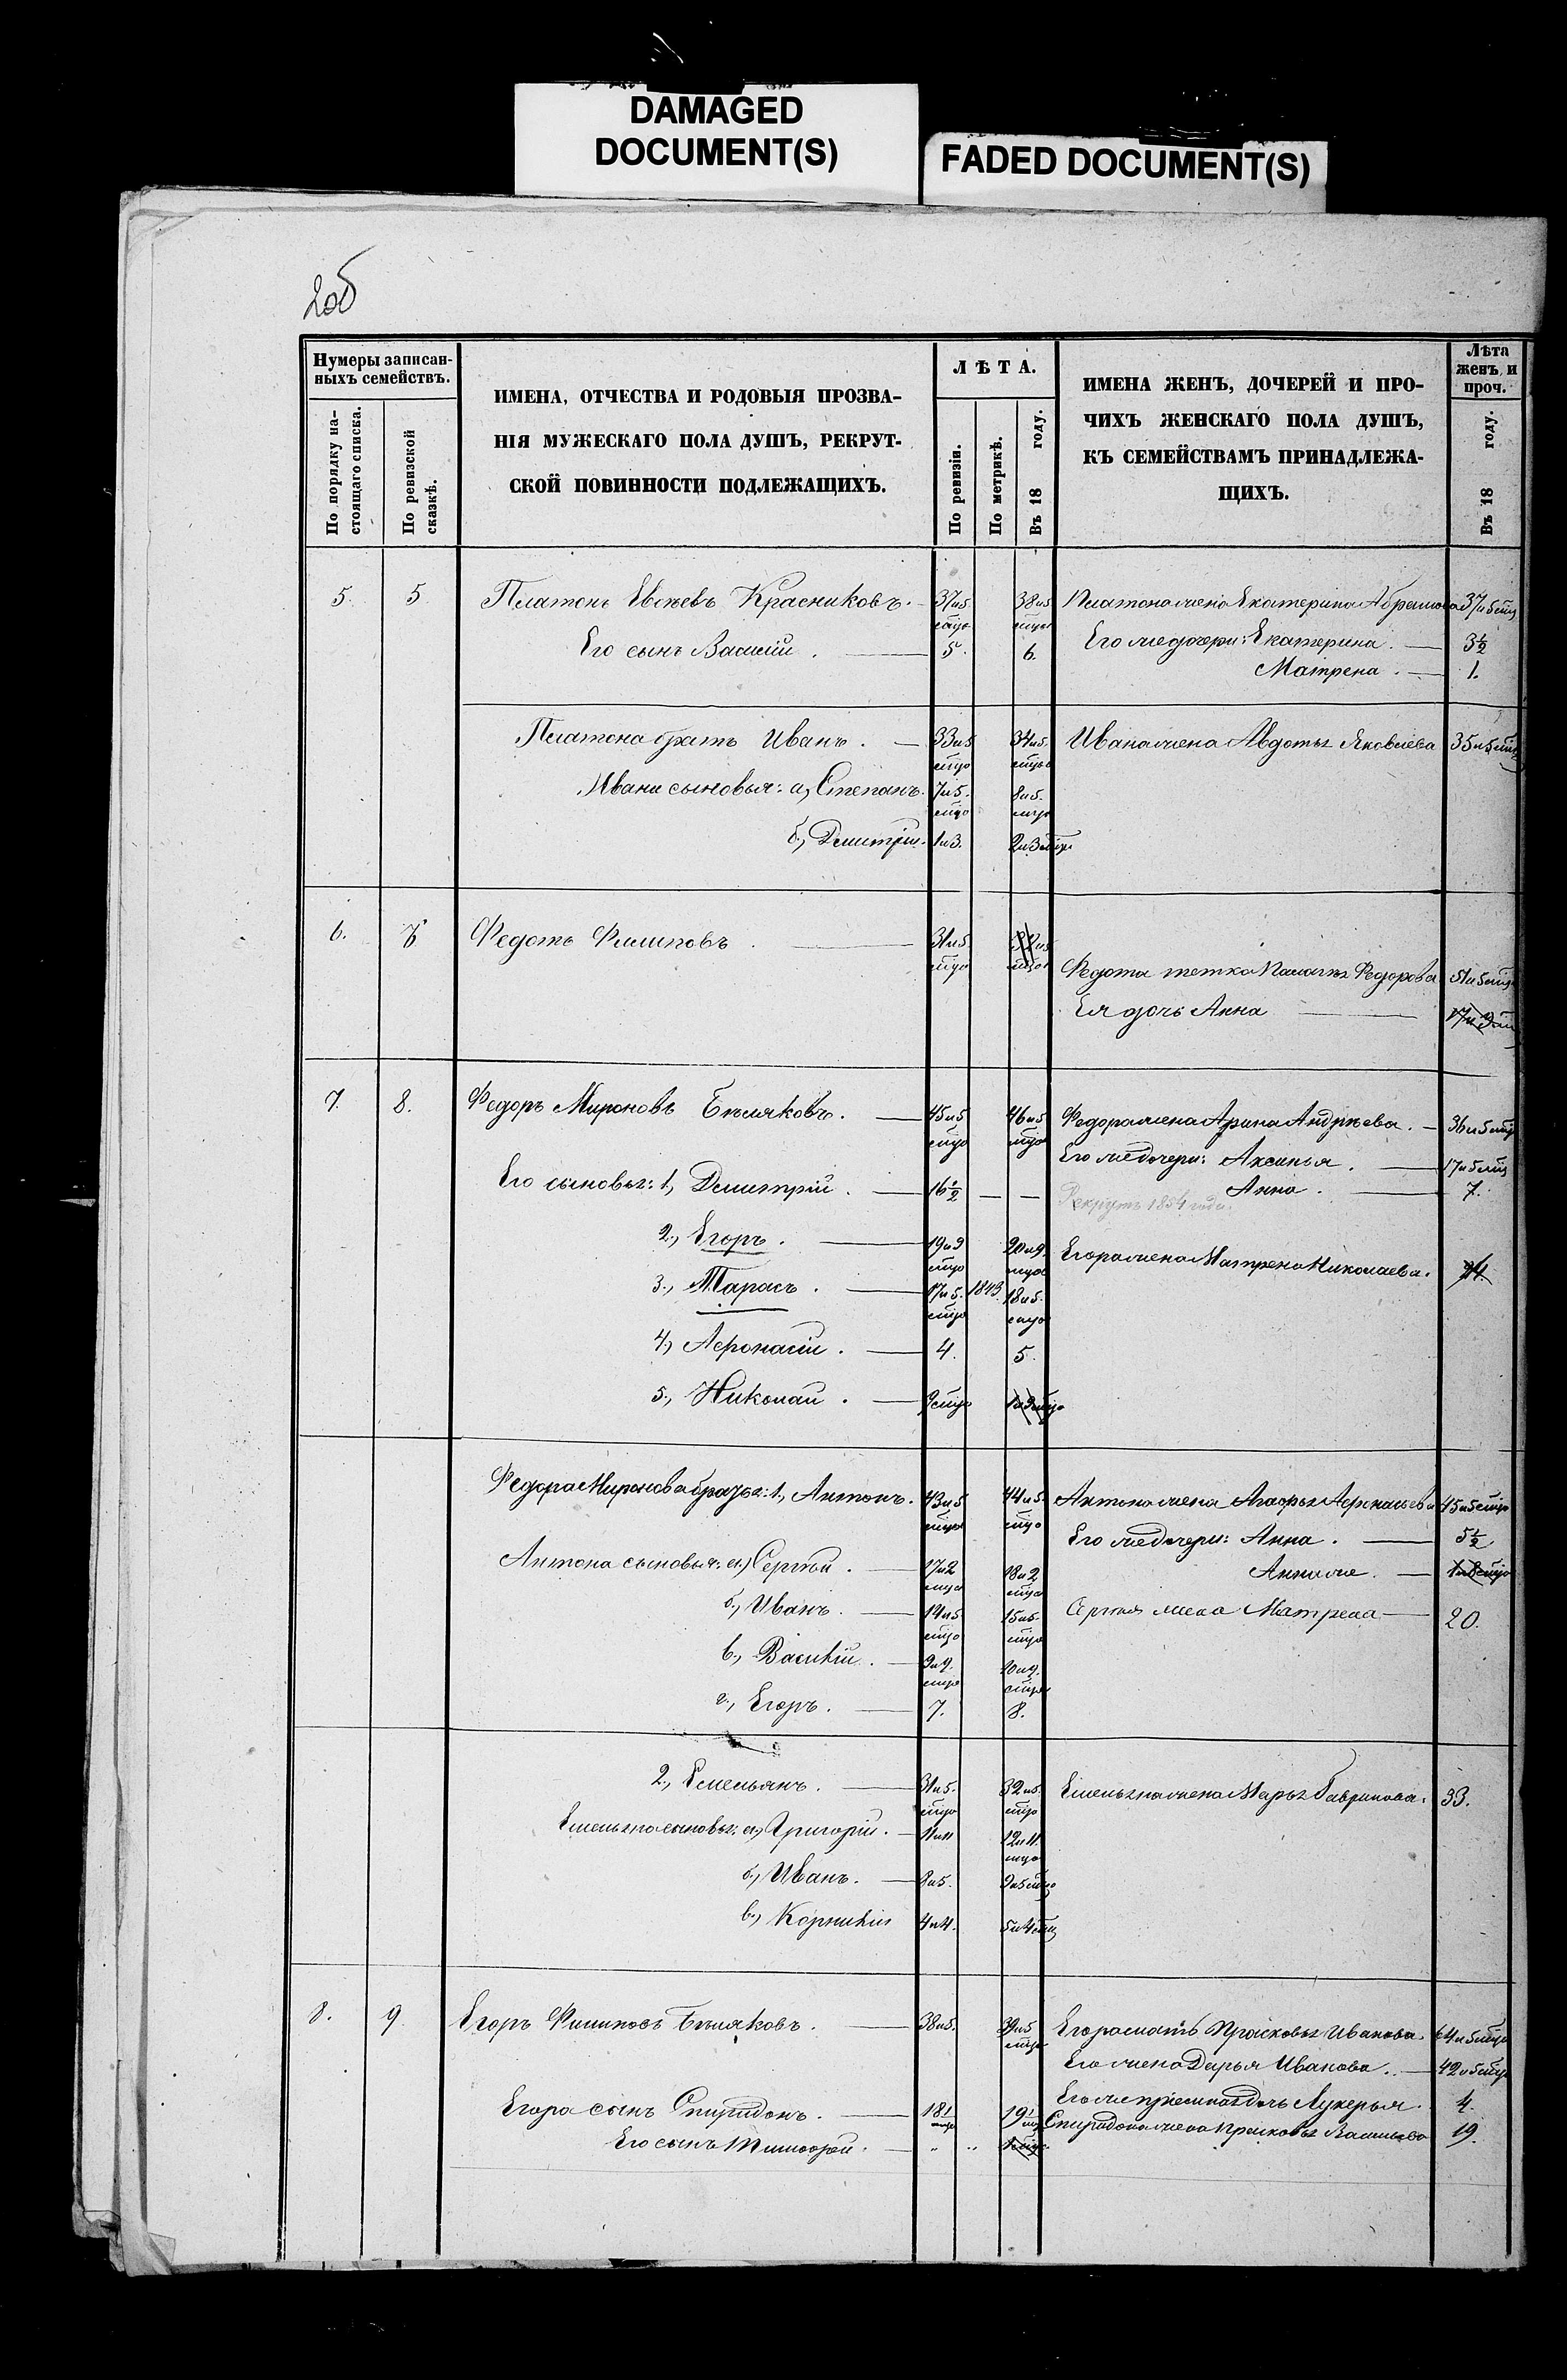 DAMAGED
DOCUMENT(S)
FADED DOCUMENT(S)
2об
Нумеры записан-
ныхъ семействъ.
По порядку на-
стоящаго списка.
По ревизской
сказкѣ.
ИМЕНА, ОТЧЕСТВА И РОДОВЫЯ ПРОЗВА-
НІЯ МУЖЕСКАГО ПОЛА ДУШЪ, РЕКРУТ-
СКОЙ ПОВИННОСТИ ПОДЛЕЖАЩИХЪ.
ЛѢТА.
По ревизіи.
По метрикѣ.
Въ 18 году.
ИМЕНА ЖЕНЪ, ДОЧЕРЕЙ И ПРО-
ЧИХЪ ЖЕНСКАГО ПОЛА ДУШЪ,
КЪ СЕМЕЙСТВАМЪ ПРИНАДЛЕЖА-
ЩИХЪ.
Лѣта
женъ и
проч.
Въ 18 году.
5. 5 Платонъ Евсѣевъ Красниковъ. 37 и 5 38 и 5 Платона жена Екатерина Абрамова 37 и 5
Его сынъ Василій. 5. 6. Его же дочери: Екатерина. 3½
Матрена. 1.
Платона братъ Иванъ. 33 и 5 34 и 5. Ивана жена Авдотья Яковлева 35 и 5
Ивана сыновья: а, Степанъ. 7 и 5. 8 и 5.
б, Дмитрій. 1 и 3. 2 и 3
6. Федотъ Филиповъ. 31 и 5 32 и 5
Федота тетка Палагѣя Федорова 51 и 5
Ея дочь Анна 17 и 9
7. 8. Федоръ Мироновъ Бѣляковъ. 45 и 5 46 и 5 Федора жена Арина Андрѣева. 36 и 5
Его же дочери: Аксинья. 17 и 5
Его сыновья: 1, Дмитрій. 16½ — — Анна. 7.
Рекрутъ 1854 года.
2, Егоръ. 19 и 9 20 и 9. Егора жена Матрена Николаева. 24
3, Тарасъ. 17 и 5. 1843. 18 и 5.
4, Афонасій. 4. 5.
5, Николай. 9 1 и 9
Федора Миронова братья: 1, Антонъ. 43 и 5 44 и 5. Антона жена Агафья Афонасьева 45 и 5
Его же дочери: Анна. 5½
Антона сыновья: а, Сергѣй. 17 и 2 18 и 2 Анна же. 1 и 8
б, Иванъ. 14 и 5 15 и 5. Сергѣя жена Матрена 20.
в, Василій. 9 и 9. 10 и 9.
г, Егоръ. 7. 8.
2, Емельянъ. 31 и 5. 32 и 5. Емельяна жена Марья Гаврилова. 33.
Емельяна сыновья: а, Григорій. 11 и 11 12 и 11.
б, Иванъ. 8 и 5. 9 и 5
в, Корнилій 4 и 4. 5 и 4
8. 9. Егоръ Филиповъ Бѣляковъ. 38 и 5. 39 и 5 Егора мать Прасковья Иванова. 64 и 5
Его жена Дарья Иванова. 42 и 5
Его же пріемная дочь Лукерья. 4.
Егора сынъ Спиридонъ. 18 1 19 1 Спиридона жена Прасковья Васильева 19.
Его сынъ Тимофей. „ „